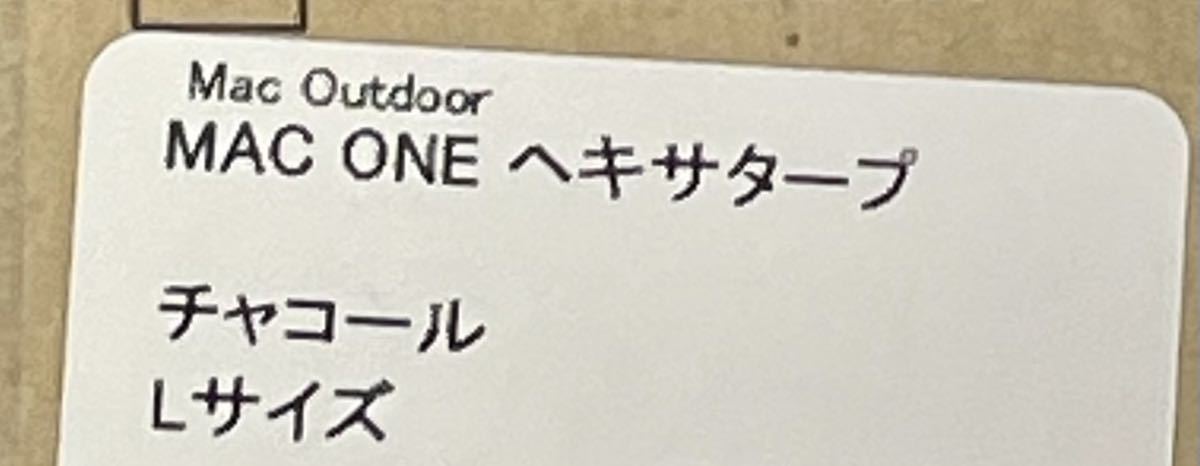 Mac Outdoor
MAC ONE ヘキサタープ
チャコール
Lサイズ